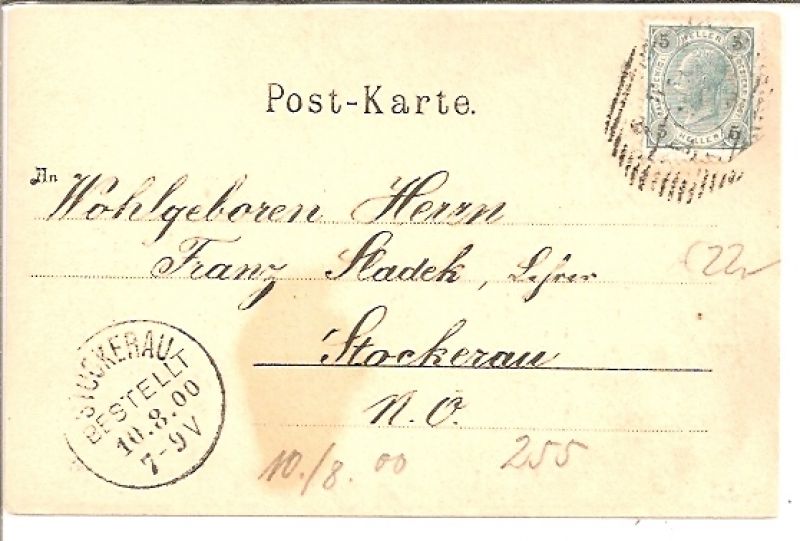 Post-Karte.
5 HELLER 5
5 HELLER 5
An Wohlgeboren Herrn
Franz Sladek, Lehrer
Stockerau
N. O.
STOCKERAU
BESTELLT
10.8.00
7-9V
10./8. 00
255